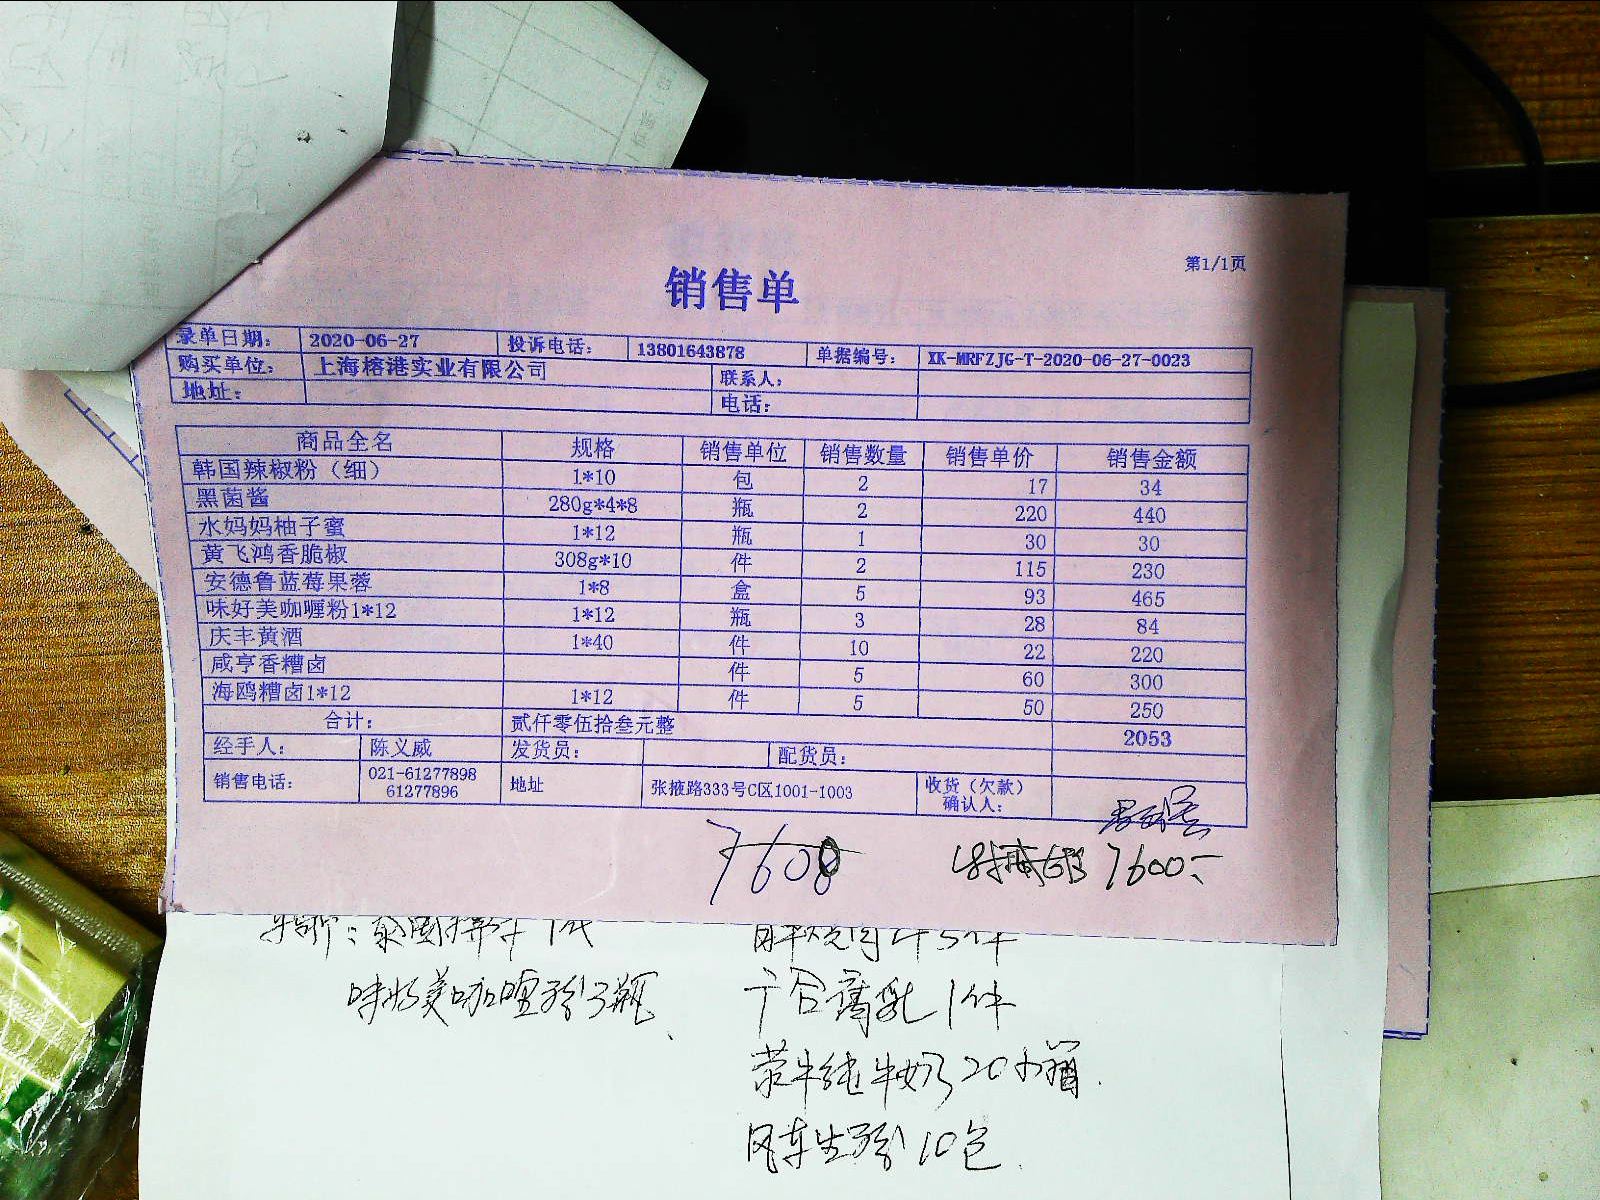 销售单
第1/1页
录单日期： 2020-06-27 投诉电话： 13801643878 单据编号： XK-MRFZJG-T-2020-06-27-0023
购买单位： 上海榕港实业有限公司 联系人：
地址： 电话：
商品全名 规格 销售单位 销售数量 销售单价 销售金额
韩国辣椒粉（细） 1*10 包 2 17 34
黑菌酱 280g*4*8 瓶 2 220 440
水妈妈柚子蜜 1*12 瓶 1 30 30
黄飞鸿香脆椒 308g*10 件 2 115 230
安德鲁蓝莓果蓉 1*8 盒 5 93 465
味好美咖喱粉1*12 1*12 瓶 3 28 84
庆丰黄酒 1*40 件 10 22 220
咸亨香糟卤 件 5 60 300
海鸥糟卤1*12 1*12 件 5 50 250
合计： 贰仟零伍拾叁元整 2053
经手人： 陈义威 发货员： 配货员：
销售电话： 021-61277898 地址 张掖路333号C区1001-1003 收货（欠款）
61277896 确认人：
7600
7600
1件
味好美咖喱粉3瓶
腐乳1件
纯牛奶20小箱
风车生粉10包